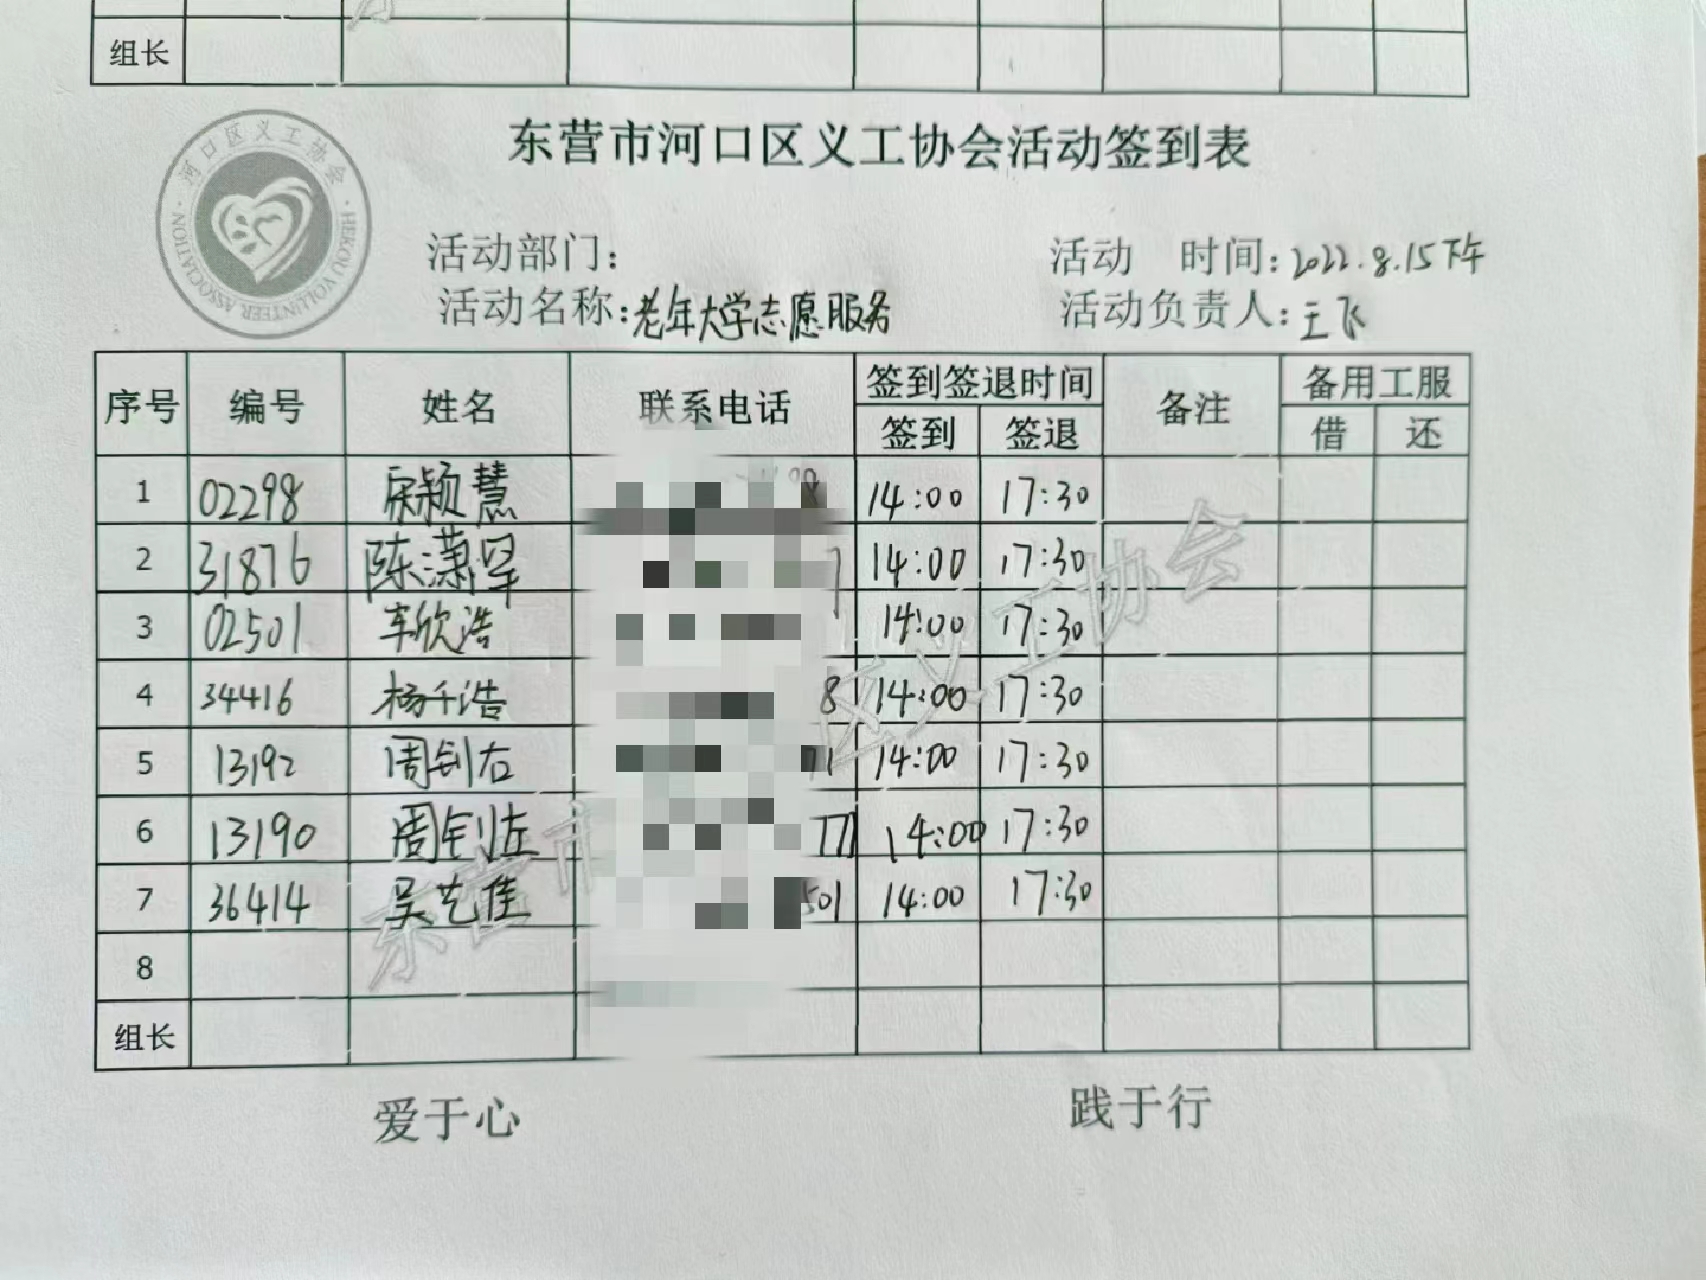 组长
东营市河口区义工协会活动签到表
河口区义工协会
HEKOU VOLUNTEER ASSOCIATION
活动部门:
活动 时间:2022.8.15下午
活动名称:老年大学志愿服务
活动负责人:王飞
序号 编号 姓名 联系电话 签到签退时间 备注 备用工服
签到 签退 借 还
1 02298 宋颖慧 14:00 17:30
2 31876 陈潇 14:00 17:30
3 02501 车欣浩 14:00 17:30
4 34416 杨千浩 8 14:00 17:30
5 13192 周钊右 71 14:00 17:30
6 13190 周钊左 77 14:00 17:30
7 36414 吴艺佳 501 14:00 17:30
8
组长
东营市 区义工协会
爱于心 践于行